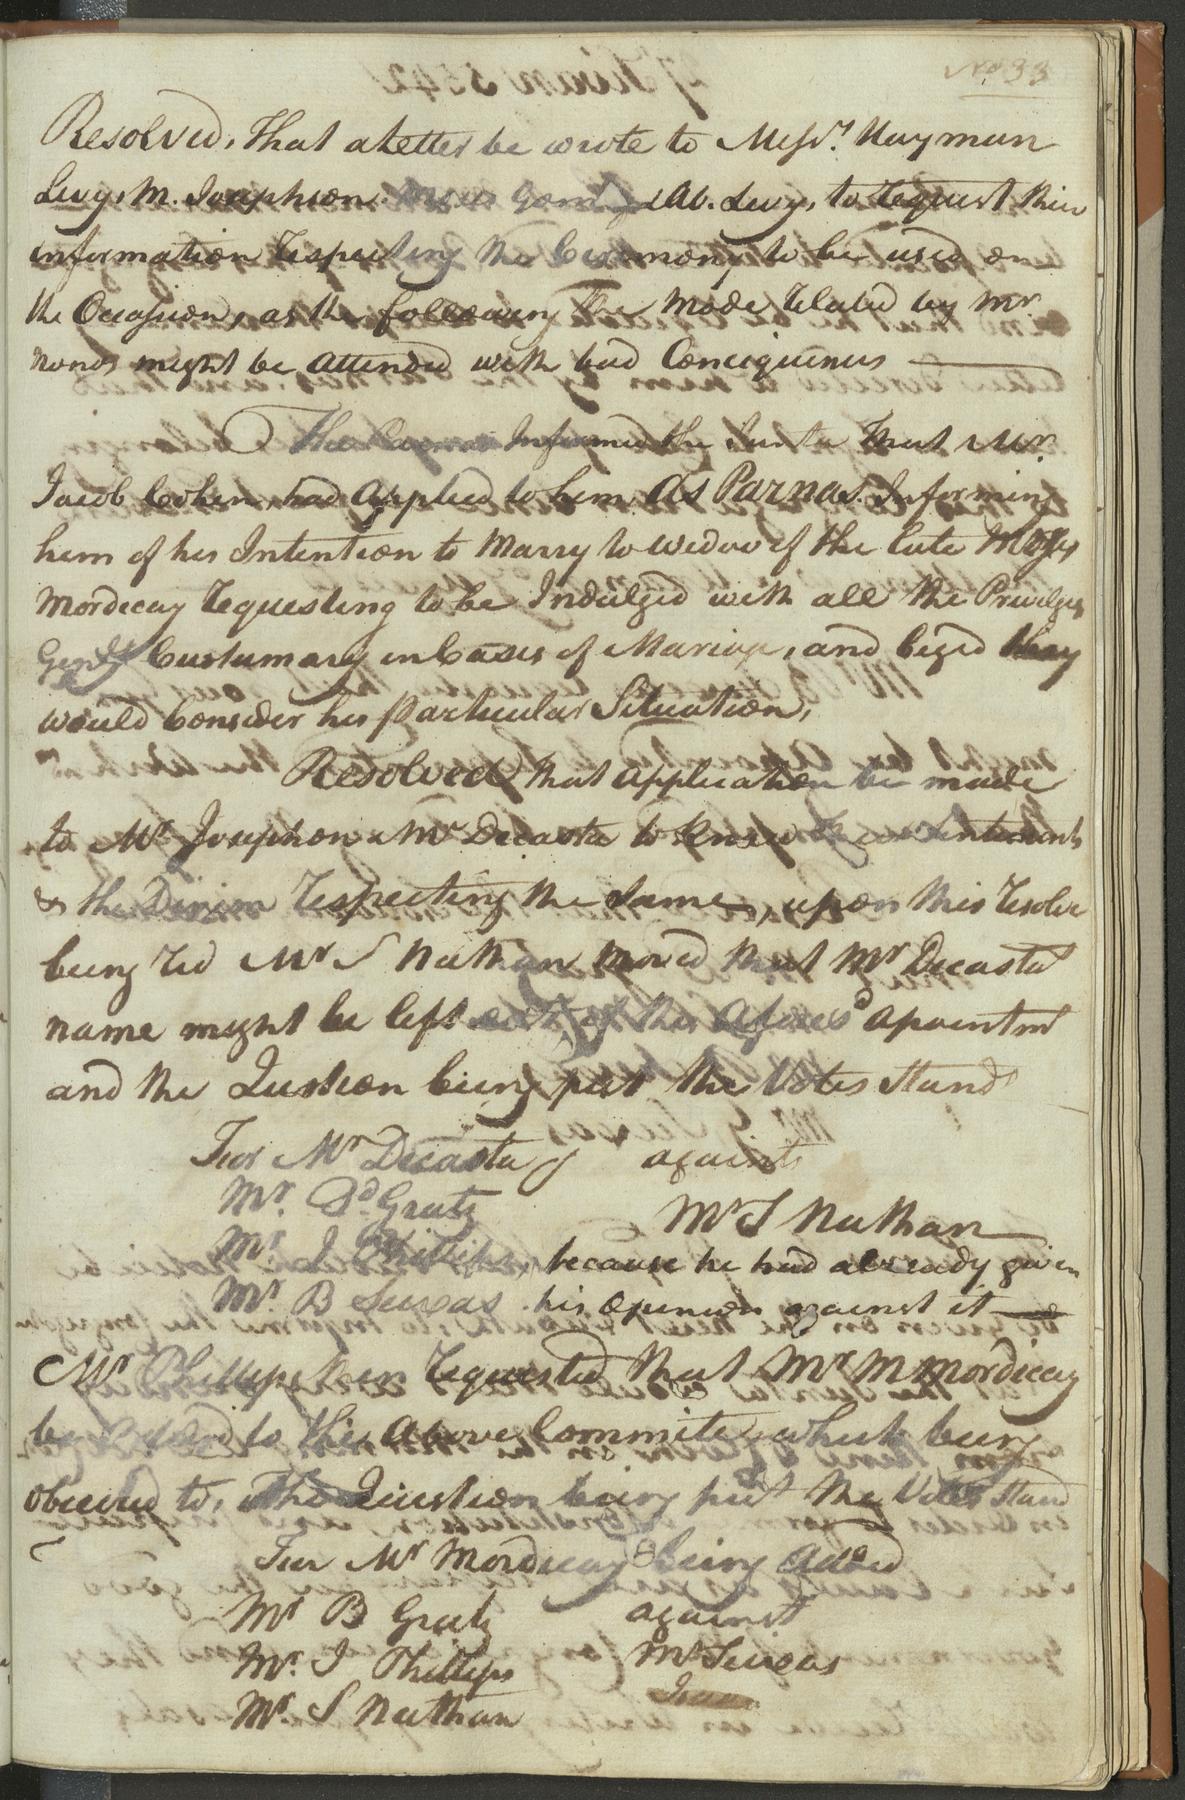 No 33
Resolved, That a Letter be wrote to Messrs. Hayman
Levy, M. Josephson. Moses Gomez & Ab. Levy, to request their
information respecting the Ceremony to be used on
the Occassion, as the following the Mode related by Mr.
Nones might be attended with bad Conciquences
The Parnas Informed the Junta That Mr.
Jacob Cohen, had applied to him As Parnas. Informing
him of his Intention to Marry to Widow of the late Moses
Mordecay requesting to be Indulged with all the Privelges
Genly Custumary in Cases of Mariage, and beged they
would Consider his Particular Situation,
Resolved That Application be made
to Mr. Josephson & Mr Decasta to know
& the Dinim respecting the same, upon this resolve
being red Mr S Nathan moved that Mr Decasta
name might be left out of this aforesd apointmt
and the Qustion being put the Votes Stand
For Mr Decasta
against
Mr. Bd Gratz
Mr S Nathan
Mr. J Phillips
because he had already given
Mr. B Seixas
his opinion against it
Mr Phillips then requested that Mr M Mordicay
be added to the above Commite which being
objected to, the Question being put the Votes Stand
For Mr Mordicay being added
Mr B Gratz
against
Mr. J Phillips
Mr Seixas
Mr. S Nathan